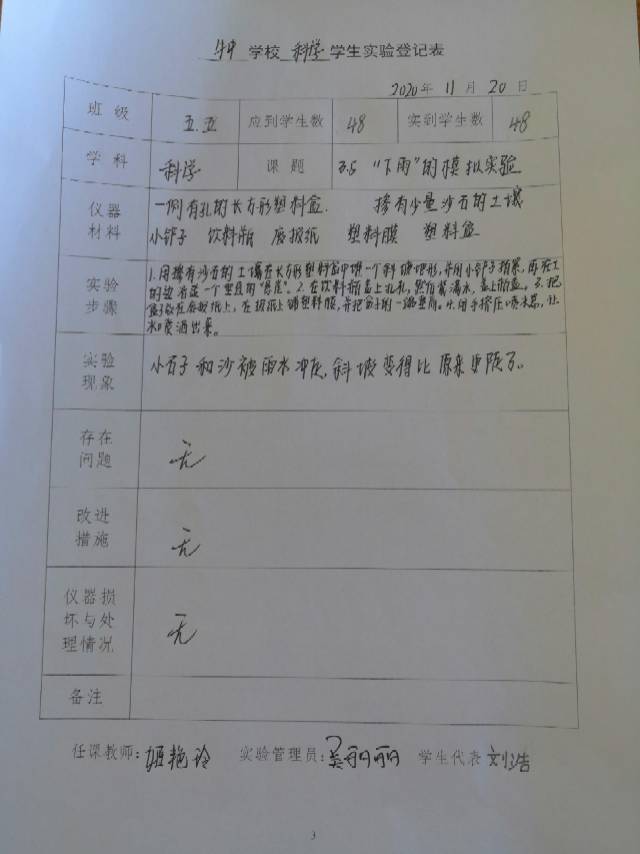 学校 科学 学生实验登记表
2020年 11月 20日
班级 五.五 应到学生数 48 实到学生数 48
学科 科学 课题 3.5 “下雨”的模拟实验
仪器材料 一侧有孔的长方形塑料盒. 掺有少量沙石的土壤
小铲子 饮料瓶 废报纸 塑料膜 塑料盒
实验步骤 1.用掺有沙石的土壤在长方形塑料盒中堆一个斜坡地形,并用小铲子拍紧,再在土
的边沿造一个垂直的“悬崖”。2.在饮料瓶盖上扎孔,然后装满水,盖上瓶盖。3.把
盒子放在废报纸上,在报纸上铺塑料膜,并把盒子的一端垫高。4.用手挤压喷水器,让
水喷洒出来。
实验现象 小石子和沙被雨水冲走,斜坡变得比原来更陡了。
存在问题 无
改进措施 无
仪器损坏与处理情况 无
备注
任课教师:姬艳玲 实验管理员:吴丽丽 学生代表 刘浩
3